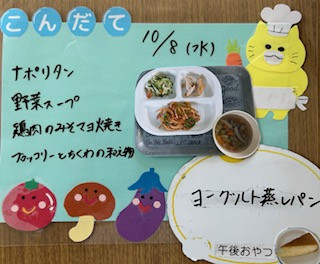 こんだて
10/8(水)
ナポリタン
野菜スープ
鶏肉のみそマヨ焼き
ブロッコリーとちくわの和え物
ヨーグルト蒸しパン
午後おやつ